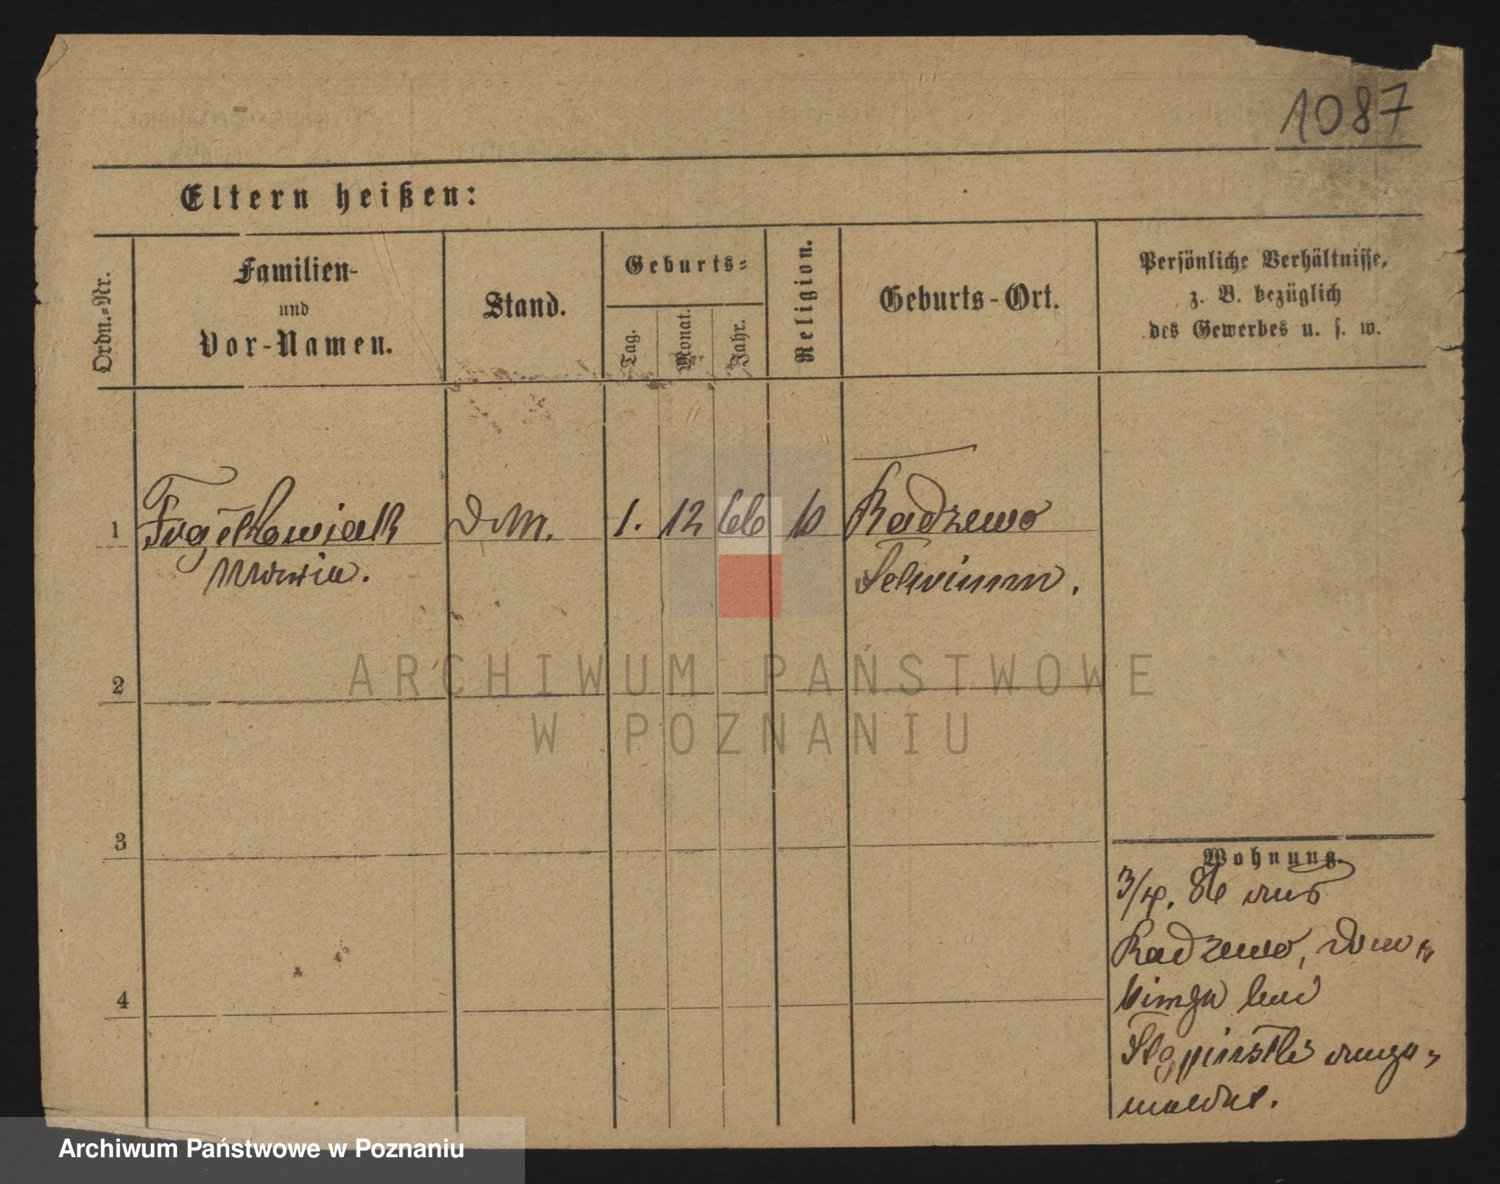 1087
Eltern heißen:
Ordn.-Nr.
Familien-
und
Vor-Namen.
Stand.
Geburts-
Tag.
Monat.
Jahr.
Religion.
Geburts-Ort.
Persönliche Verhältnisse,
z. B. bezüglich
des Gewerbes u. s. w.
1
DM. 1. 12 66 Radzewo
Maria.
Schrimm.
ARCHIWUM PAŃSTWOWE
W POZNANIU
2
3
4
Wohnung.
3/4. 86 aus
Radzewo,
bei
ange-
meldet.
Archiwum Państwowe w Poznaniu